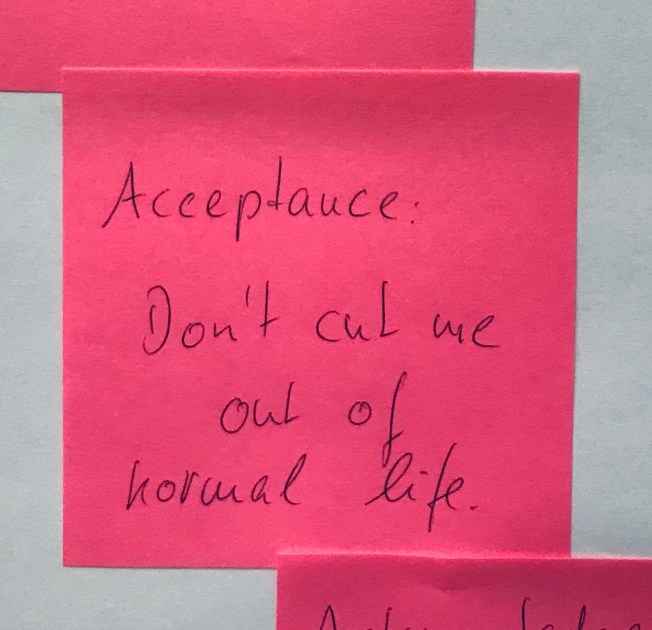 Acceptance:
Don't cut me
out of
normal life.